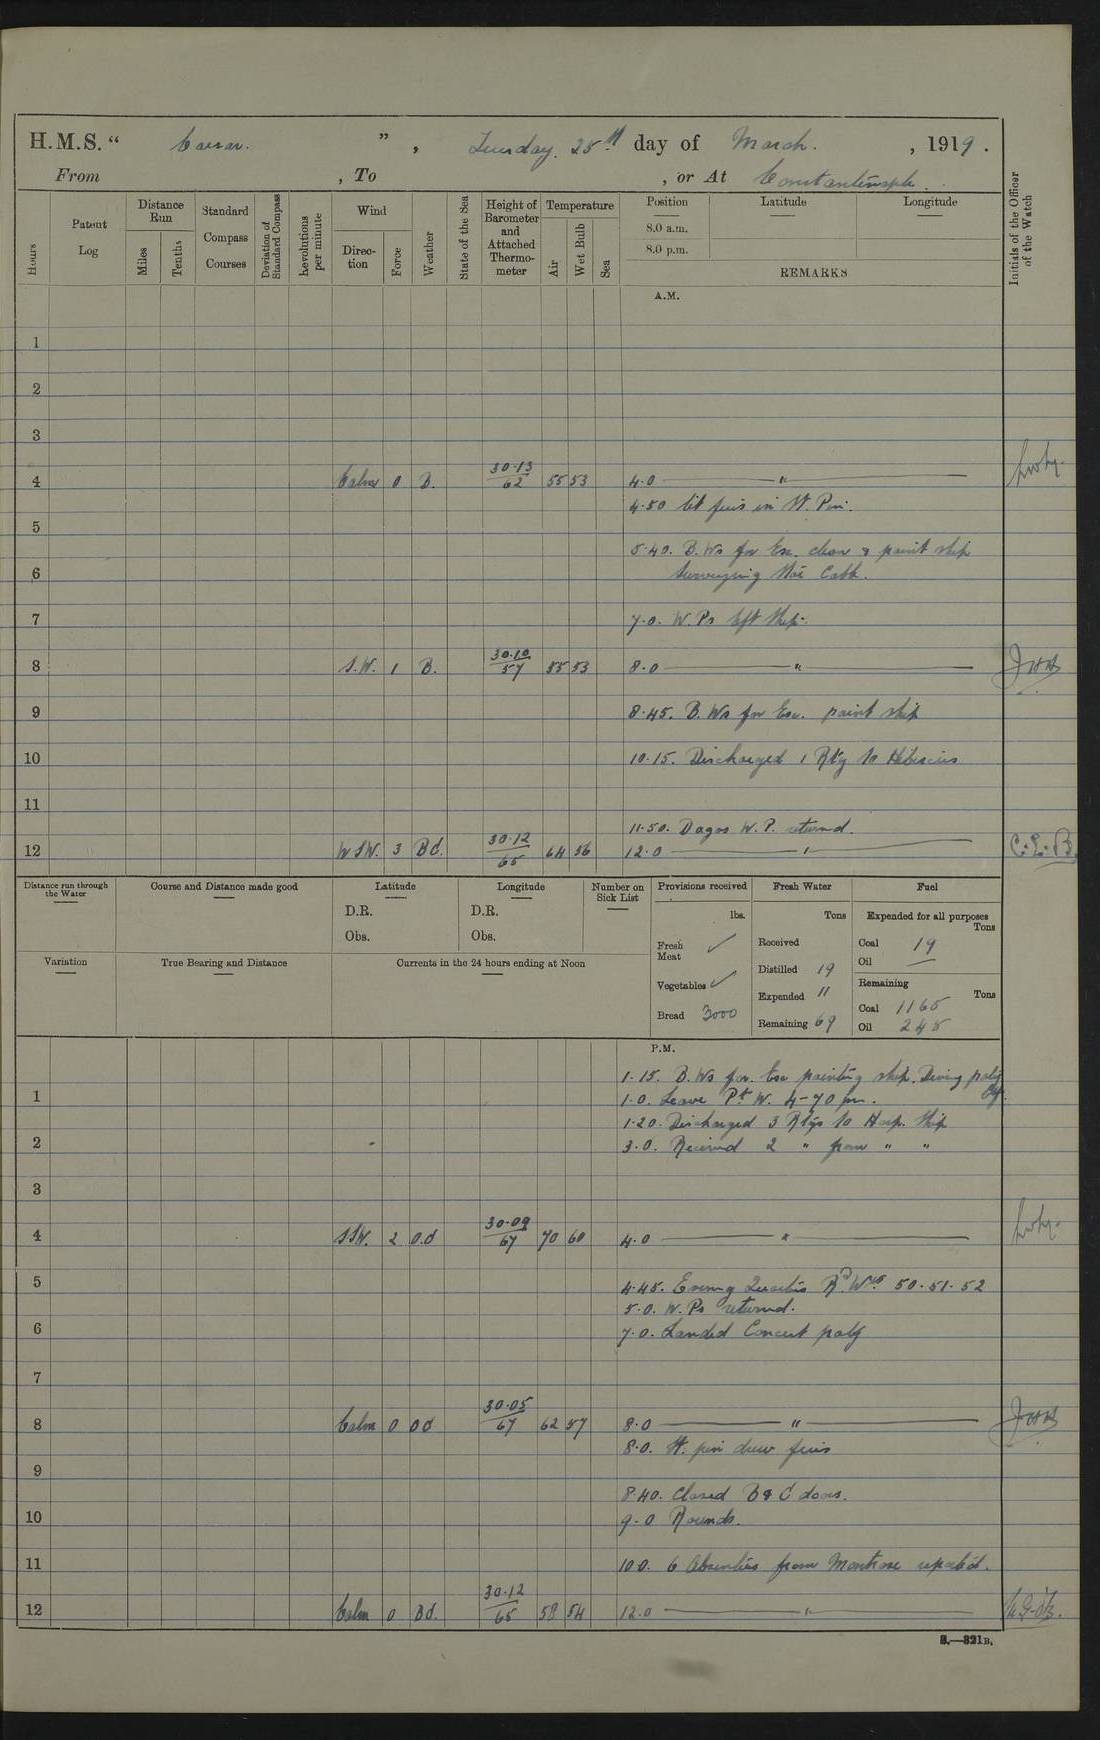 H.M.S. “ Caesar. ” , Tuesday. 25th day of March. , 1919 .
From , To , or At Constantinople.
Hours
Patent Log
Distance Run
Miles
Tenths
Standard Compass Courses
Deviation of Standard Compass
Revolutions per minute
Wind
Direction
Force
Weather
State of the Sea
Height of Barometer and Attached Thermometer
Temperature
Air
Wet Bulb
Sea
Position Latitude Longitude
8.0 a.m.
8.0 p.m.
REMARKS
Initials of the Officer of the Watch
A.M.
1
2
3
4 Calm 0 B. 30.13 62 55 53 4.0 "
4.50 lit fires in St. Pin.
5
5.40. B. Ws for Ex. clean & paint ship
6 Surveying
7 7.0. W. Ps left ship.
8 S.W. 1 B. 30.10 57 55 53 8.0 "
9 8.45. B. Ws for Ex. paint ship
10 10.15. Discharged 1 Rtg to Hibiscus
11
11.50. Dagos W. P. returned.
12 WSW. 3 Bd. 30.12 65 64 56 12.0 " C.E.B.
Distance run through the Water
Course and Distance made good
Latitude
D.R.
Obs.
Longitude
D.R.
Obs.
Number on Sick List
Provisions received
lbs.
Fresh Meat ✓
Vegetables ✓
Bread 3000
Fresh Water
Tons
Received
Distilled 19
Expended 11
Remaining 69
Fuel
Expended for all purposes
Tons
Coal 19
Oil —
Remaining
Tons
Coal 1165
Oil 245
Variation
True Bearing and Distance
Currents in the 24 hours ending at Noon
P.M.
1.15. B. Ws for. Ex painting ship. Diving party
1 1.0. Leave Pt W. 4-70 pm.
1.20. Discharged 3 Rtgs to Hosp. Ship
2 3.0. Received 2 " from " "
3
4 SSW. 2 O.d 30.09 67 70 60 4.0 "
5 4.45. Evening Quarters Rd. Wts. 50.51.52
5.0. W. Ps returned.
6 7.0. Landed Concert party
7
8 Calm 0 Od 30.05 67 62 57 8.0 "
8.0. St. pin drew fires
9
8.40. Closed B & C doors.
10 9.0 Rounds.
11 10.0. 6 Absentees from Montrose reported.
12 Calm 0 Bd. 30.12 65 58 54 12.0 "
S.—321B.